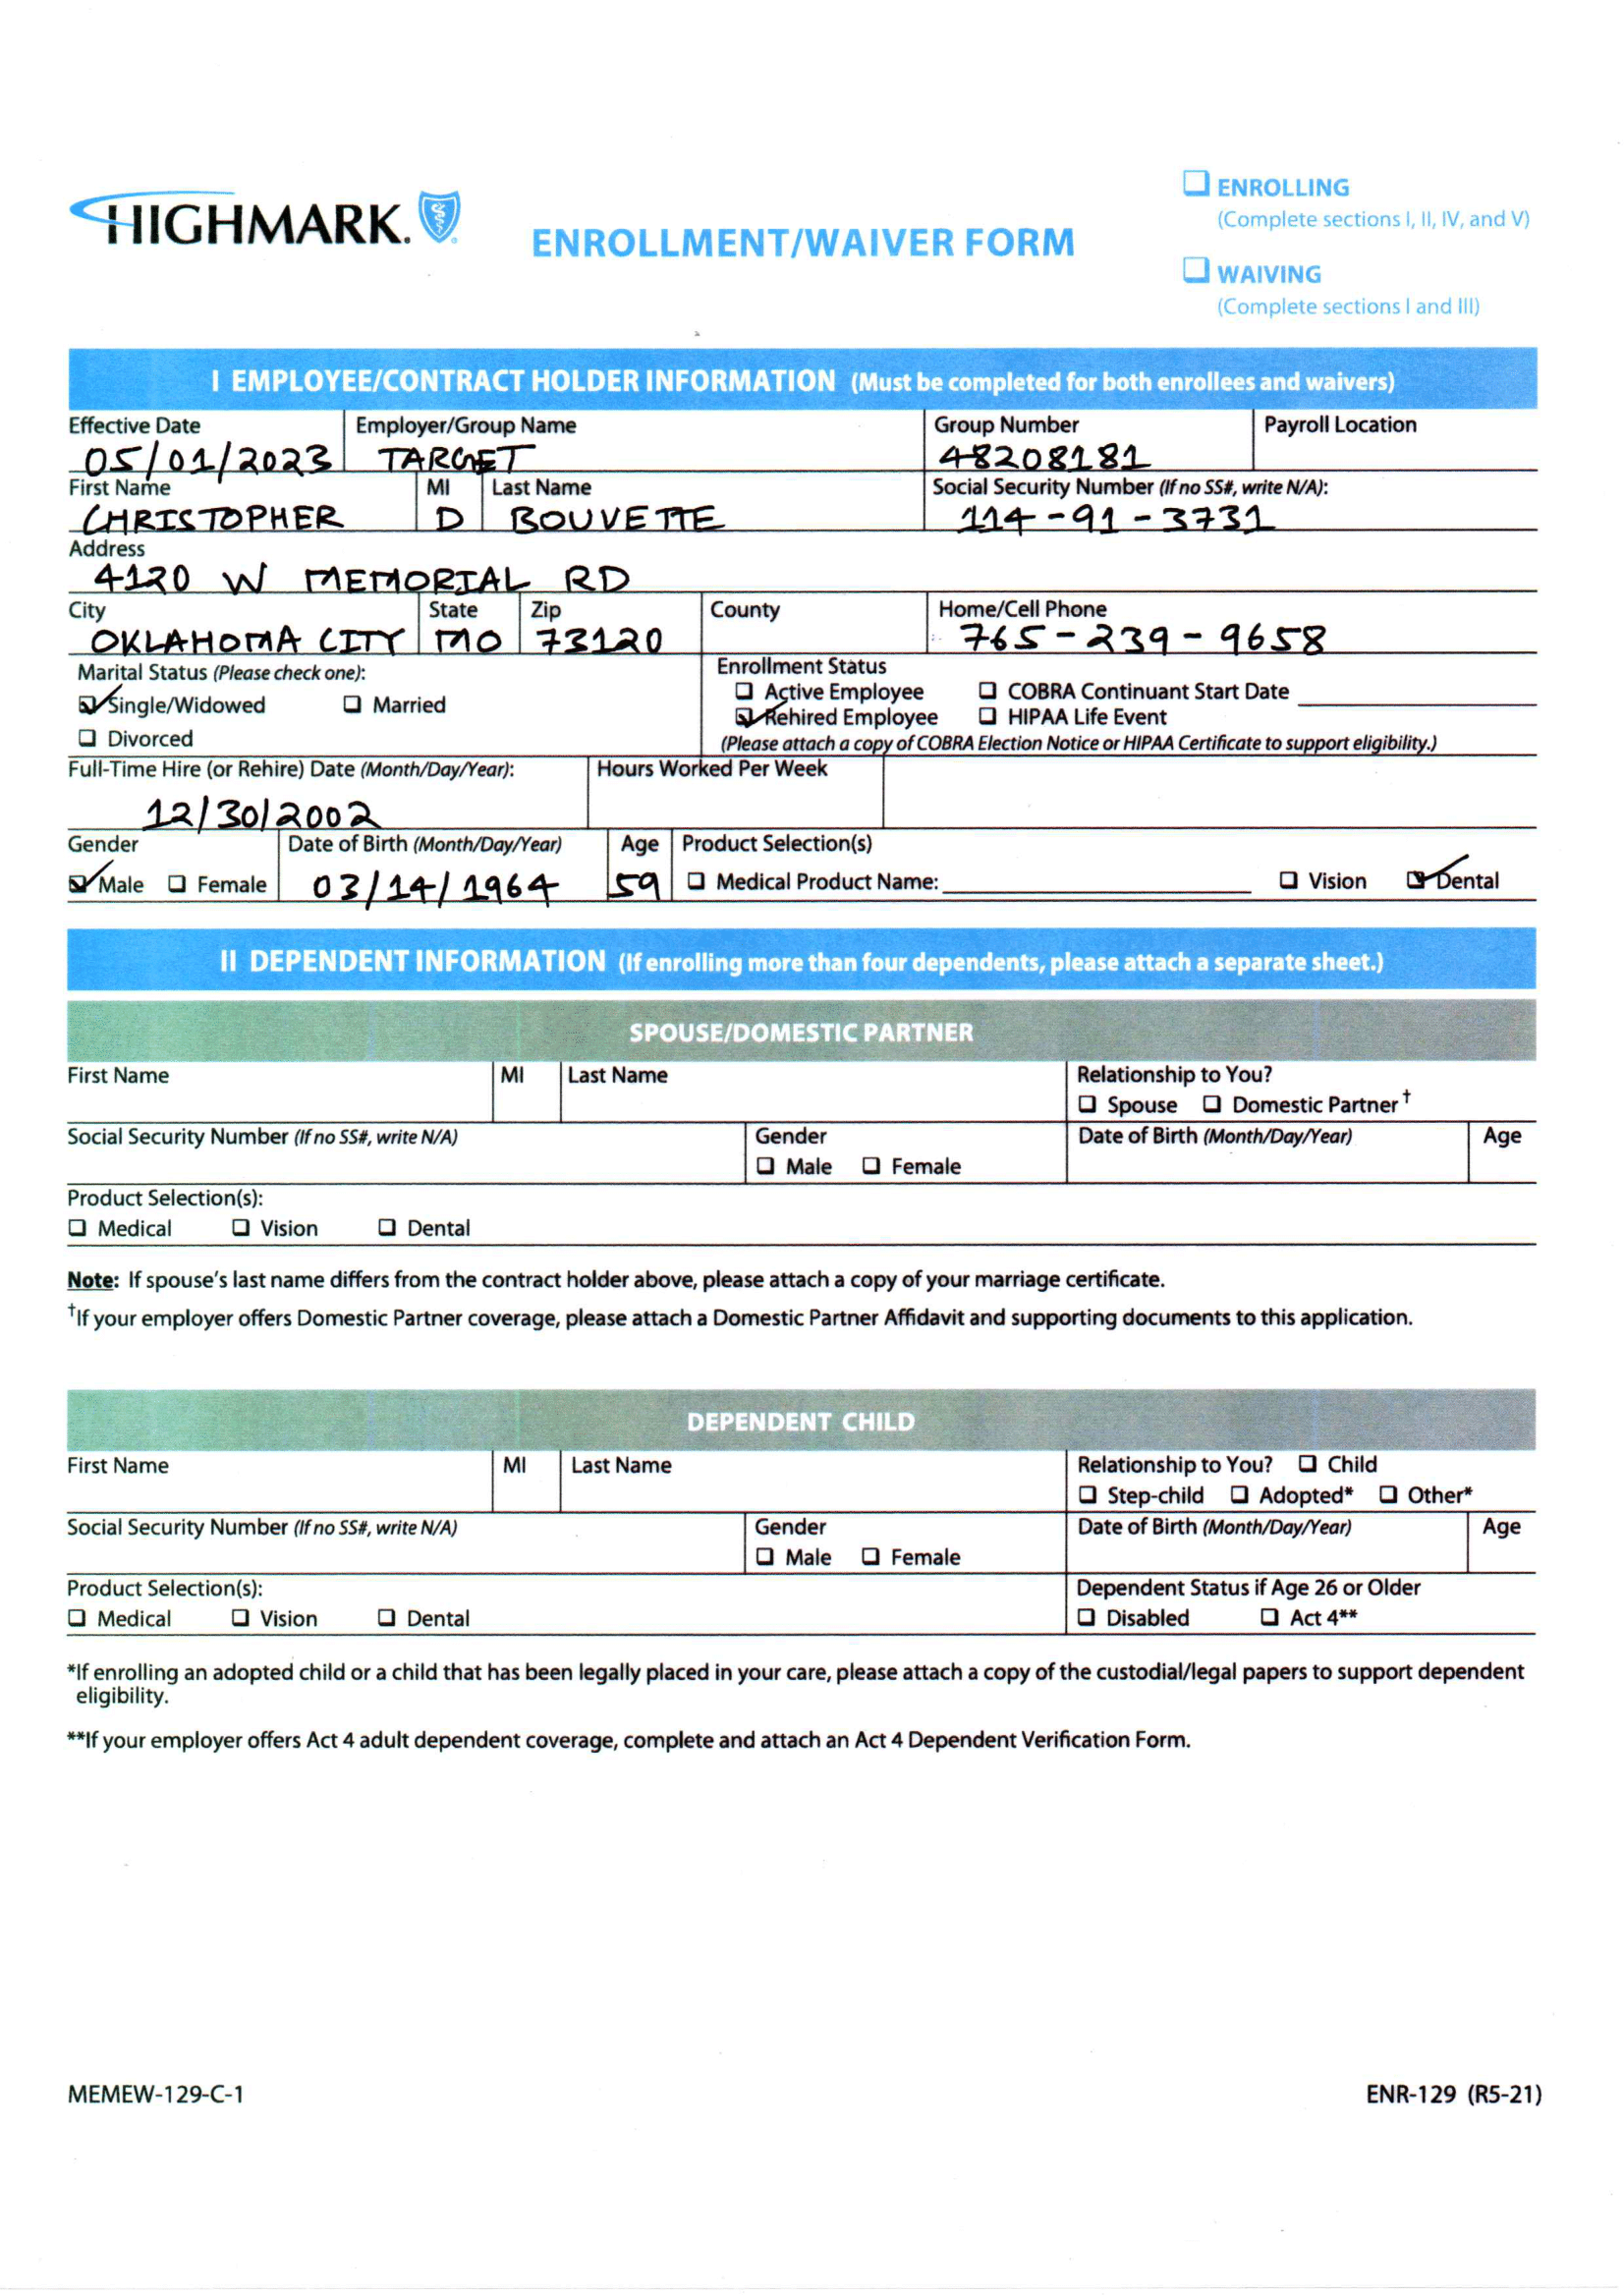 HIGHMARK.
ENROLLMENT/WAIVER FORM
❑ ENROLLING
(Complete sections I, II, IV, and V)
❑ WAIVING
(Complete sections I and III)
I EMPLOYEE/CONTRACT HOLDER INFORMATION (Must be completed for both enrollees and waivers)
Effective Date Employer/Group Name Group Number Payroll Location
05/01/2023 TARGET 48208181
First Name MI Last Name Social Security Number (If no SS#, write N/A):
CHRISTOPHER D BOUVETTE 114-91-3731
Address
4120 W MEMORIAL RD
City State Zip County Home/Cell Phone
OKLAHOMA CITY MO 73120 765-239-9658
Marital Status (Please check one): Enrollment Status
☑ Single/Widowed ❑ Married ❑ Active Employee ❑ COBRA Continuant Start Date
☑ Rehired Employee ❑ HIPAA Life Event
❑ Divorced (Please attach a copy of COBRA Election Notice or HIPAA Certificate to support eligibility.)
Full-Time Hire (or Rehire) Date (Month/Day/Year): Hours Worked Per Week
12/30/2002
Gender Date of Birth (Month/Day/Year) Age Product Selection(s)
☑ Male ❑ Female 03/14/1964 59 ❑ Medical Product Name: ❑ Vision ☑ Dental
II DEPENDENT INFORMATION (If enrolling more than four dependents, please attach a separate sheet.)
SPOUSE/DOMESTIC PARTNER
First Name MI Last Name Relationship to You?
❑ Spouse ❑ Domestic Partner†
Social Security Number (If no SS#, write N/A) Gender Date of Birth (Month/Day/Year) Age
❑ Male ❑ Female
Product Selection(s):
❑ Medical ❑ Vision ❑ Dental
Note: If spouse's last name differs from the contract holder above, please attach a copy of your marriage certificate.
†If your employer offers Domestic Partner coverage, please attach a Domestic Partner Affidavit and supporting documents to this application.
DEPENDENT CHILD
First Name MI Last Name Relationship to You? ❑ Child
❑ Step-child ❑ Adopted* ❑ Other*
Social Security Number (If no SS#, write N/A) Gender Date of Birth (Month/Day/Year) Age
❑ Male ❑ Female
Product Selection(s): Dependent Status if Age 26 or Older
❑ Medical ❑ Vision ❑ Dental ❑ Disabled ❑ Act 4**
*If enrolling an adopted child or a child that has been legally placed in your care, please attach a copy of the custodial/legal papers to support dependent
eligibility.
**If your employer offers Act 4 adult dependent coverage, complete and attach an Act 4 Dependent Verification Form.
MEMEW-129-C-1 ENR-129 (R5-21)